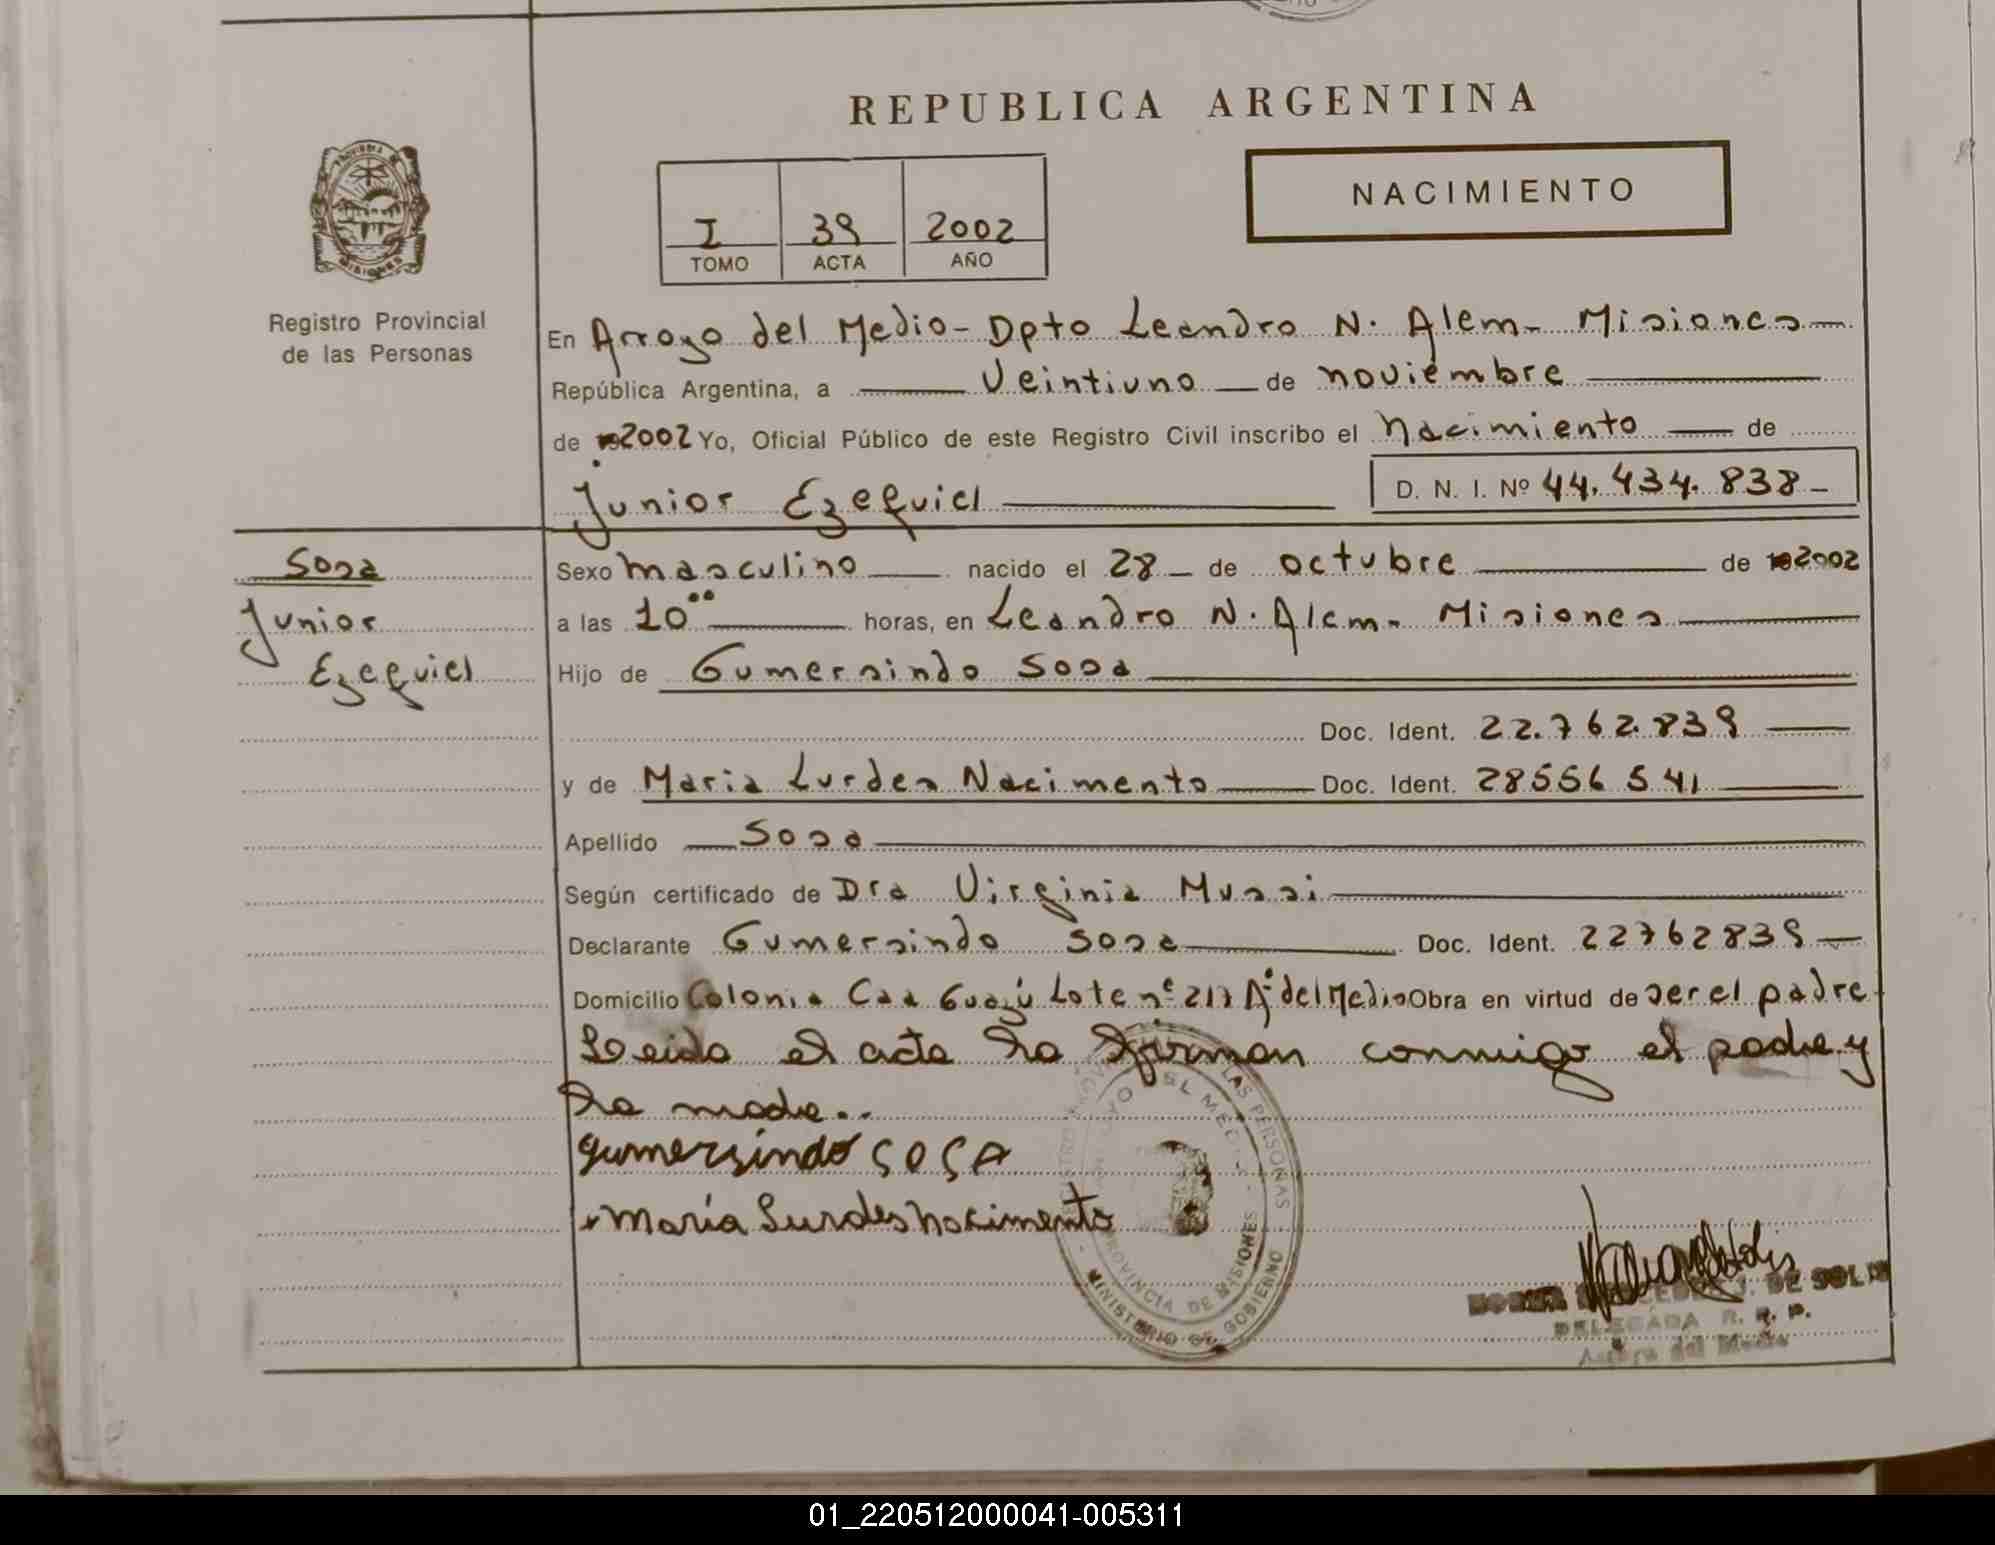 REPUBLICA ARGENTINA
NACIMIENTO
I 39 2002
TOMO ACTA AÑO
Registro Provincial
de las Personas
En Arroyo del Medio - Dpto Leandro N. Alem - Misiones
República Argentina, a Veintiuno de noviembre
de 2002 Yo, Oficial Público de este Registro Civil inscribo el Nacimiento de
Junior Ezequiel D. N. I. Nº 44.434.838
Sosa
Junior
Ezequiel
Sexo masculino nacido el 28 de octubre de 2002
a las 10 horas, en Leandro N. Alem - Misiones
Hijo de Gumersindo Sosa
Doc. Ident. 22.762.839
y de Maria Lurdes Nacimento Doc. Ident. 28556541
Apellido Sosa
Según certificado de Dra Virginia Mussi
Declarante Gumersindo Sosa Doc. Ident. 22762839
Domicilio Colonia Caa Guazú Lote nº Aº del Medio Obra en virtud de ser el padre
Leida el acta la firman conmigo el padre y
la madre..
gumersindo SOSA
María Lurdes nacimento
PROVINCIA DE MISIONES
MINISTERIO DE GOBIERNO
LAS PERSONAS
J. DE SOLIS
DELEGADA R. P.
Arroyo del Medio
01_220512000041-005311